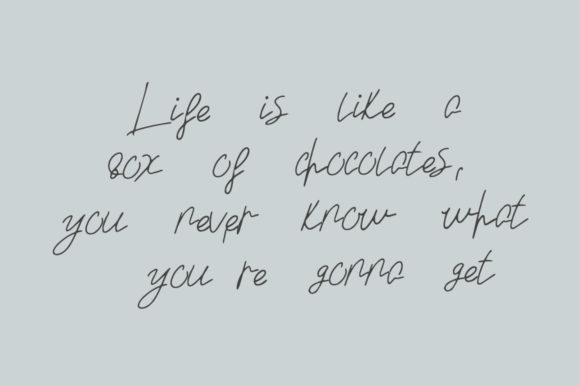 Life is like a
box of chocolates,
you never know what
you're gonna get